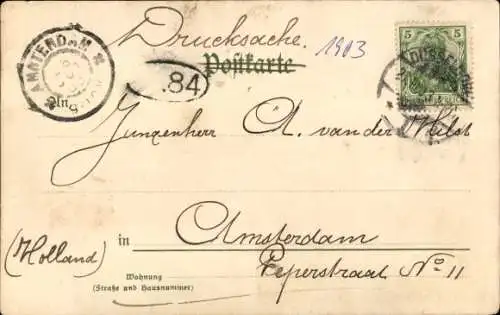 Drucksache.
1903
Postkarte
AMSTERDAM
.84
5 5
An
Jungenherr A. van der Hilst
in Amsterdam
(Holland)
Peperstraat No 11
Wohnung
(Straße und Hausnummer)